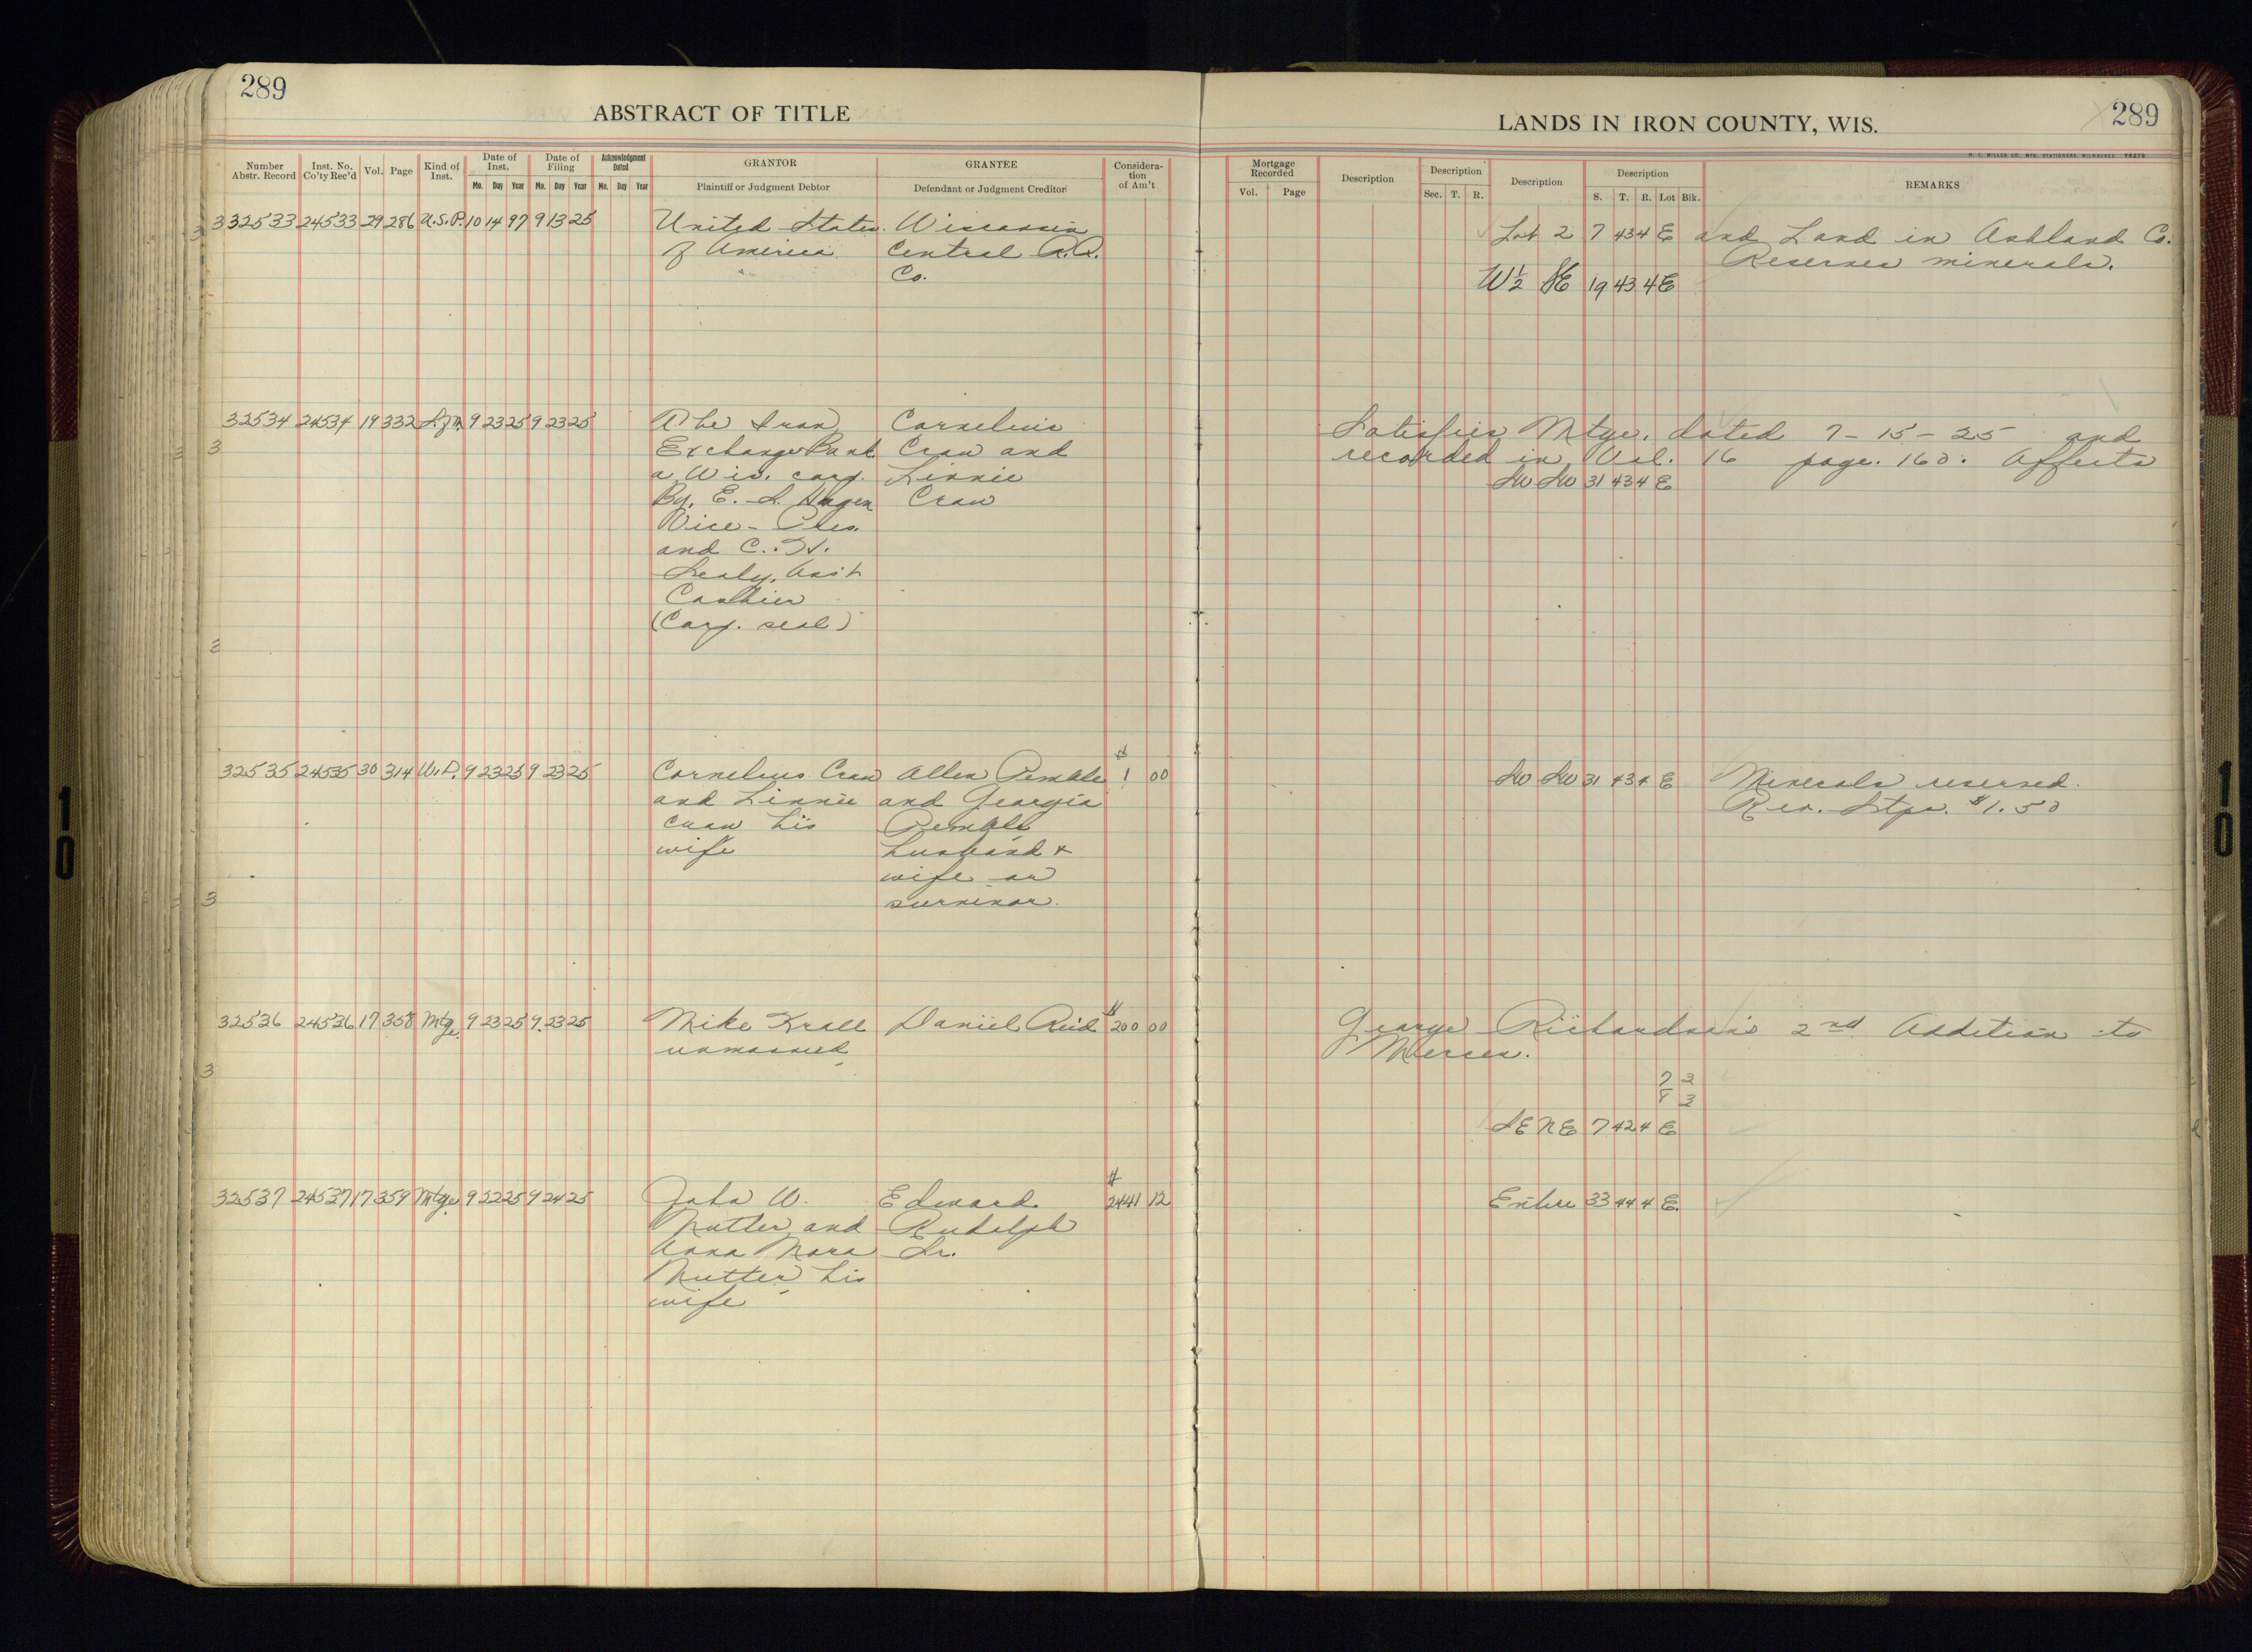 289
ABSTRACT OF TITLE
Number Abstr. Record | Inst. No. Co'ty Rec'd | Vol. | Page | Kind of Inst. | Date of Inst. Mo. Day Year | Date of Filing Mo. Day Year | Acknowledgment Dated Mo. Day Year | GRANTOR Plaintiff or Judgment Debtor | GRANTEE Defendant or Judgment Creditor | Considera-tion of Am't
32533 24533 29 286 U.S.P. 10 14 97 9 13 25 United States Wisconsin
of America Central R.R.
Co.
32534 24534 19 332 9 23 25 9 23 25 The Iron Cornelius
Exchange Bank Craw and
a Wis. corp. Linnie
By, E. S. Hagen Craw
Vice - Pres.
and C. H.
Sealy, Asst
Cashier
(Corp. seal)
32535 24535 30 314 W.D. 9 23 25 9 23 25 Cornelius Craw Allen Pemble $ 1 00
and Linnie and Georgia
Craw his Pemble
wife husband &
wife or
survivor.
32536 24536 17 358 Mtge. 9 23 25 9 23 25 Mike Krall Daniel Reid $ 200 00
unmarried
32537 24537 17 359 Mtge. 9 22 25 9 24 25 John W. Edward $ 2441 12
Nutter and Rudolph
Anna Mara Sr.
Nutter his
wife
289
LANDS IN IRON COUNTY, WIS.
H. C. MILLER CO. MFG. STATIONERS, MILWAUKEE
Mortgage Recorded Vol. Page | Description | Description Sec. T. R. | Description | Description S. T. R. Lot Blk. | REMARKS
Lot 2 7 43 4 E and Land in Ashland Co.
Reserves minerals.
W½ SE 19 43 4 E
Satisfies Mtge. dated 7-15-25 and
recorded in Vol. 16 page. 160. Affects
SW SW 31 43 4 E
SW SW 31 43 4 E Minerals reserved.
Rev. Stps. $1.50
George Richardson's 2nd Addition to
Mercer.
7 3
8 3
SE NE 7 42 4 E
Entire 33 44 4 E.